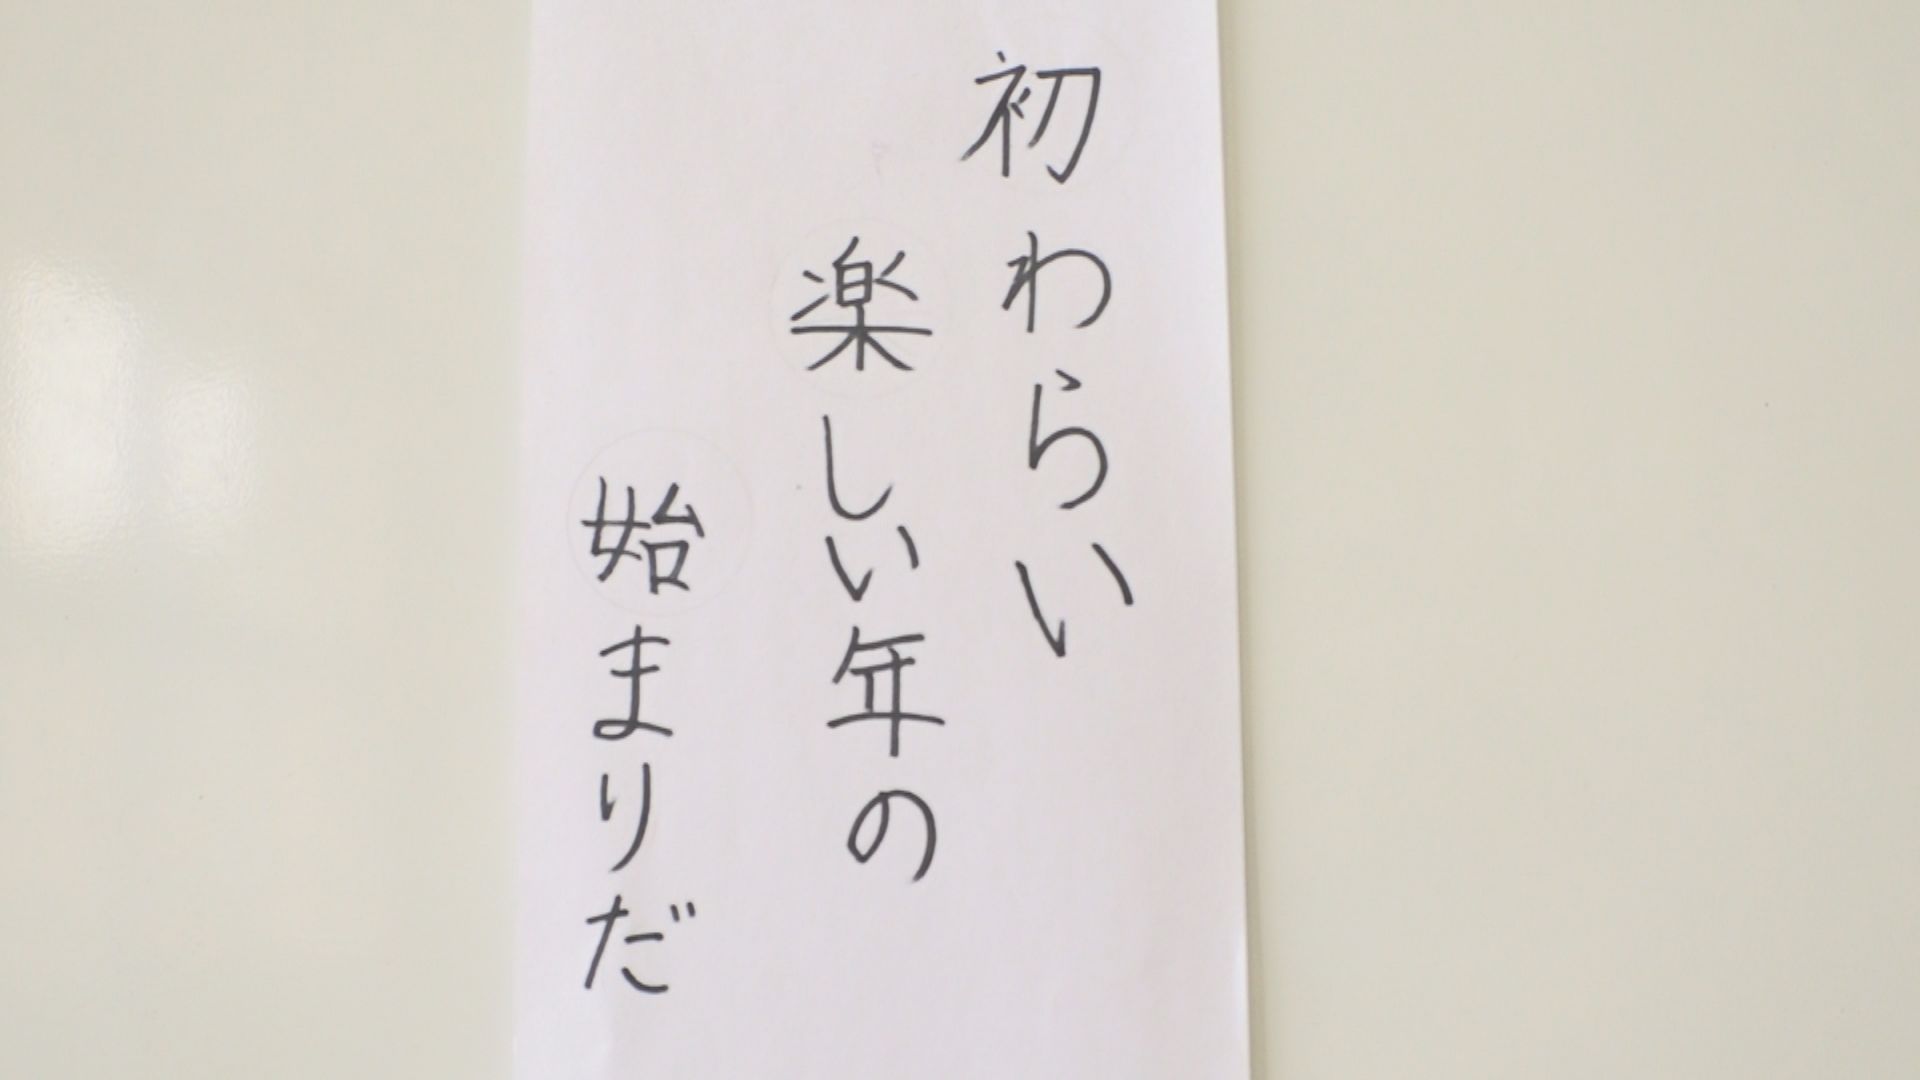 初わらい
楽しい年の
始まりだ